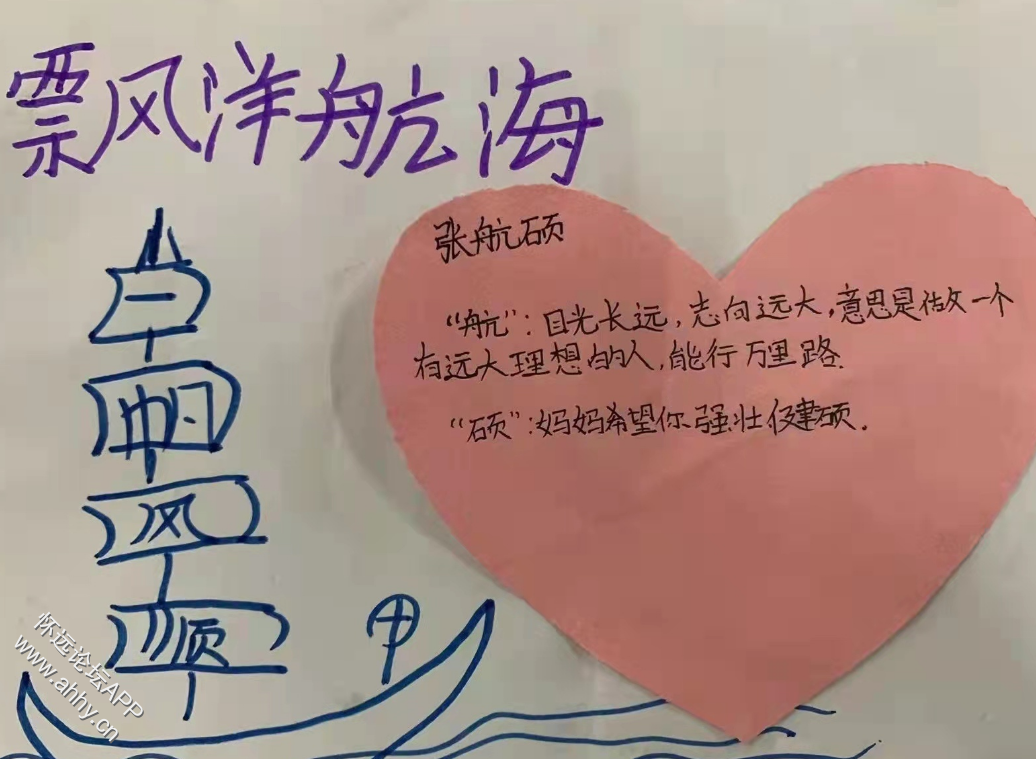 票风洋航海
张航硕
“航”：目光长远，志向远大，意思是做一个
有远大理想的人，能行万里路.
“硕”：妈妈希望你强壮健硕．
一
帆
风
顺
怀远论坛APP
www.ahhy.cn